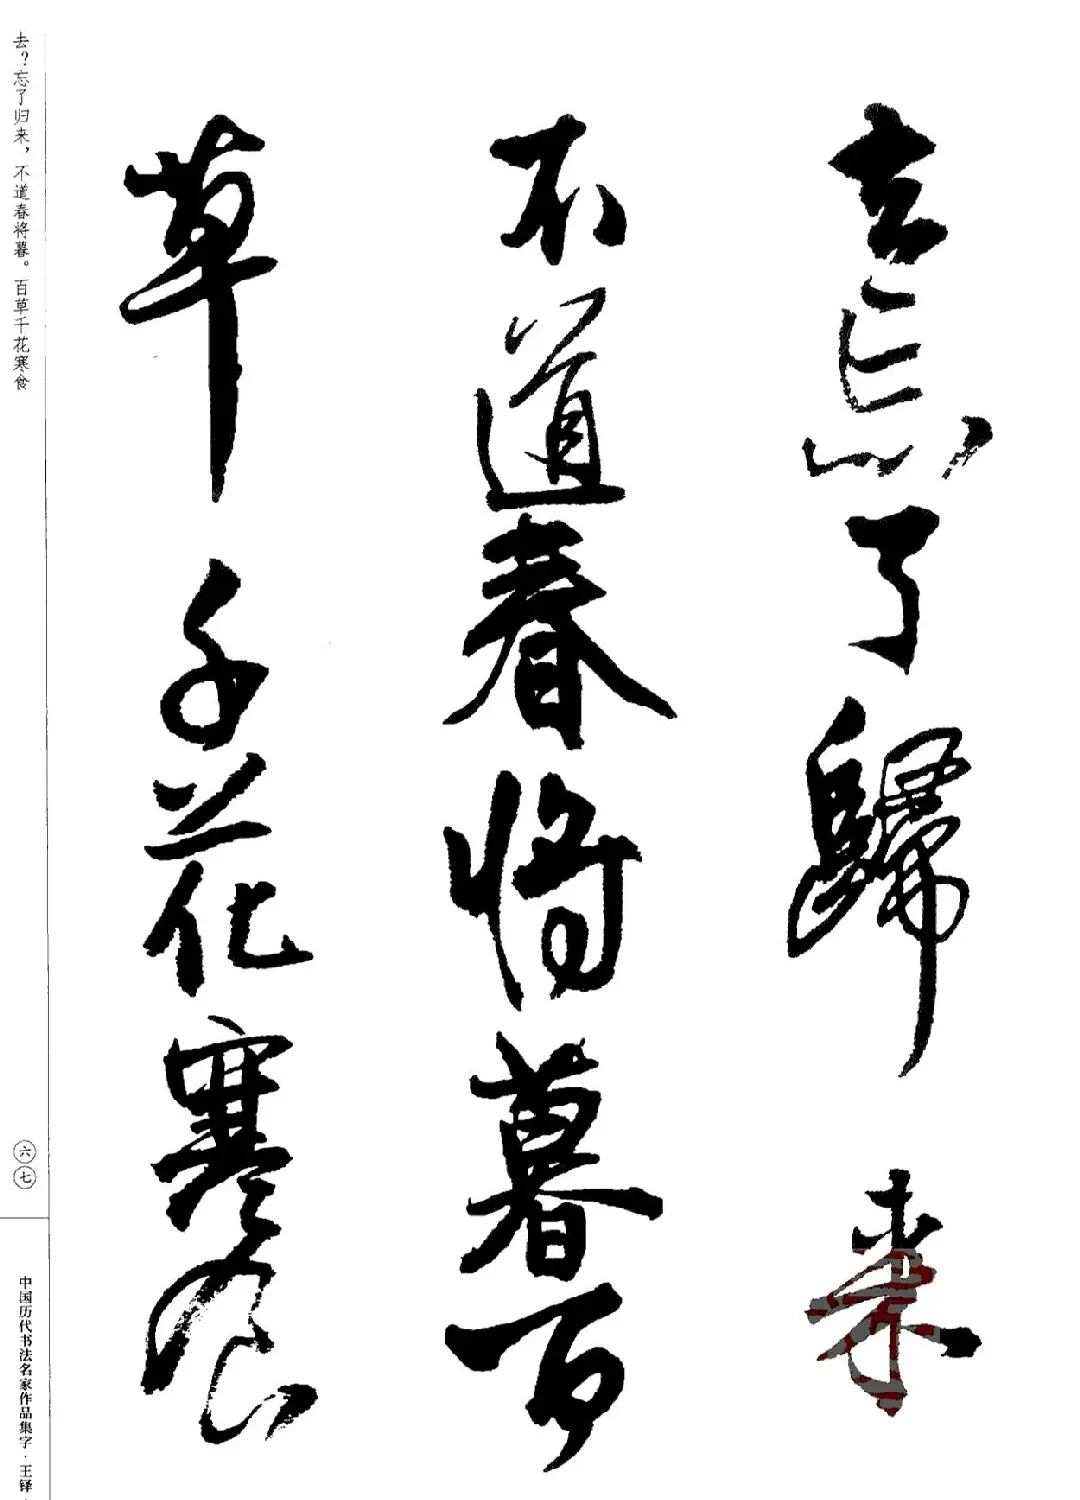 去忘了歸来
不道春将暮百
草千花寒食
去？忘了归来，不道春将暮。百草千花寒食
六七
中国历代书法名家作品集字·王铎·